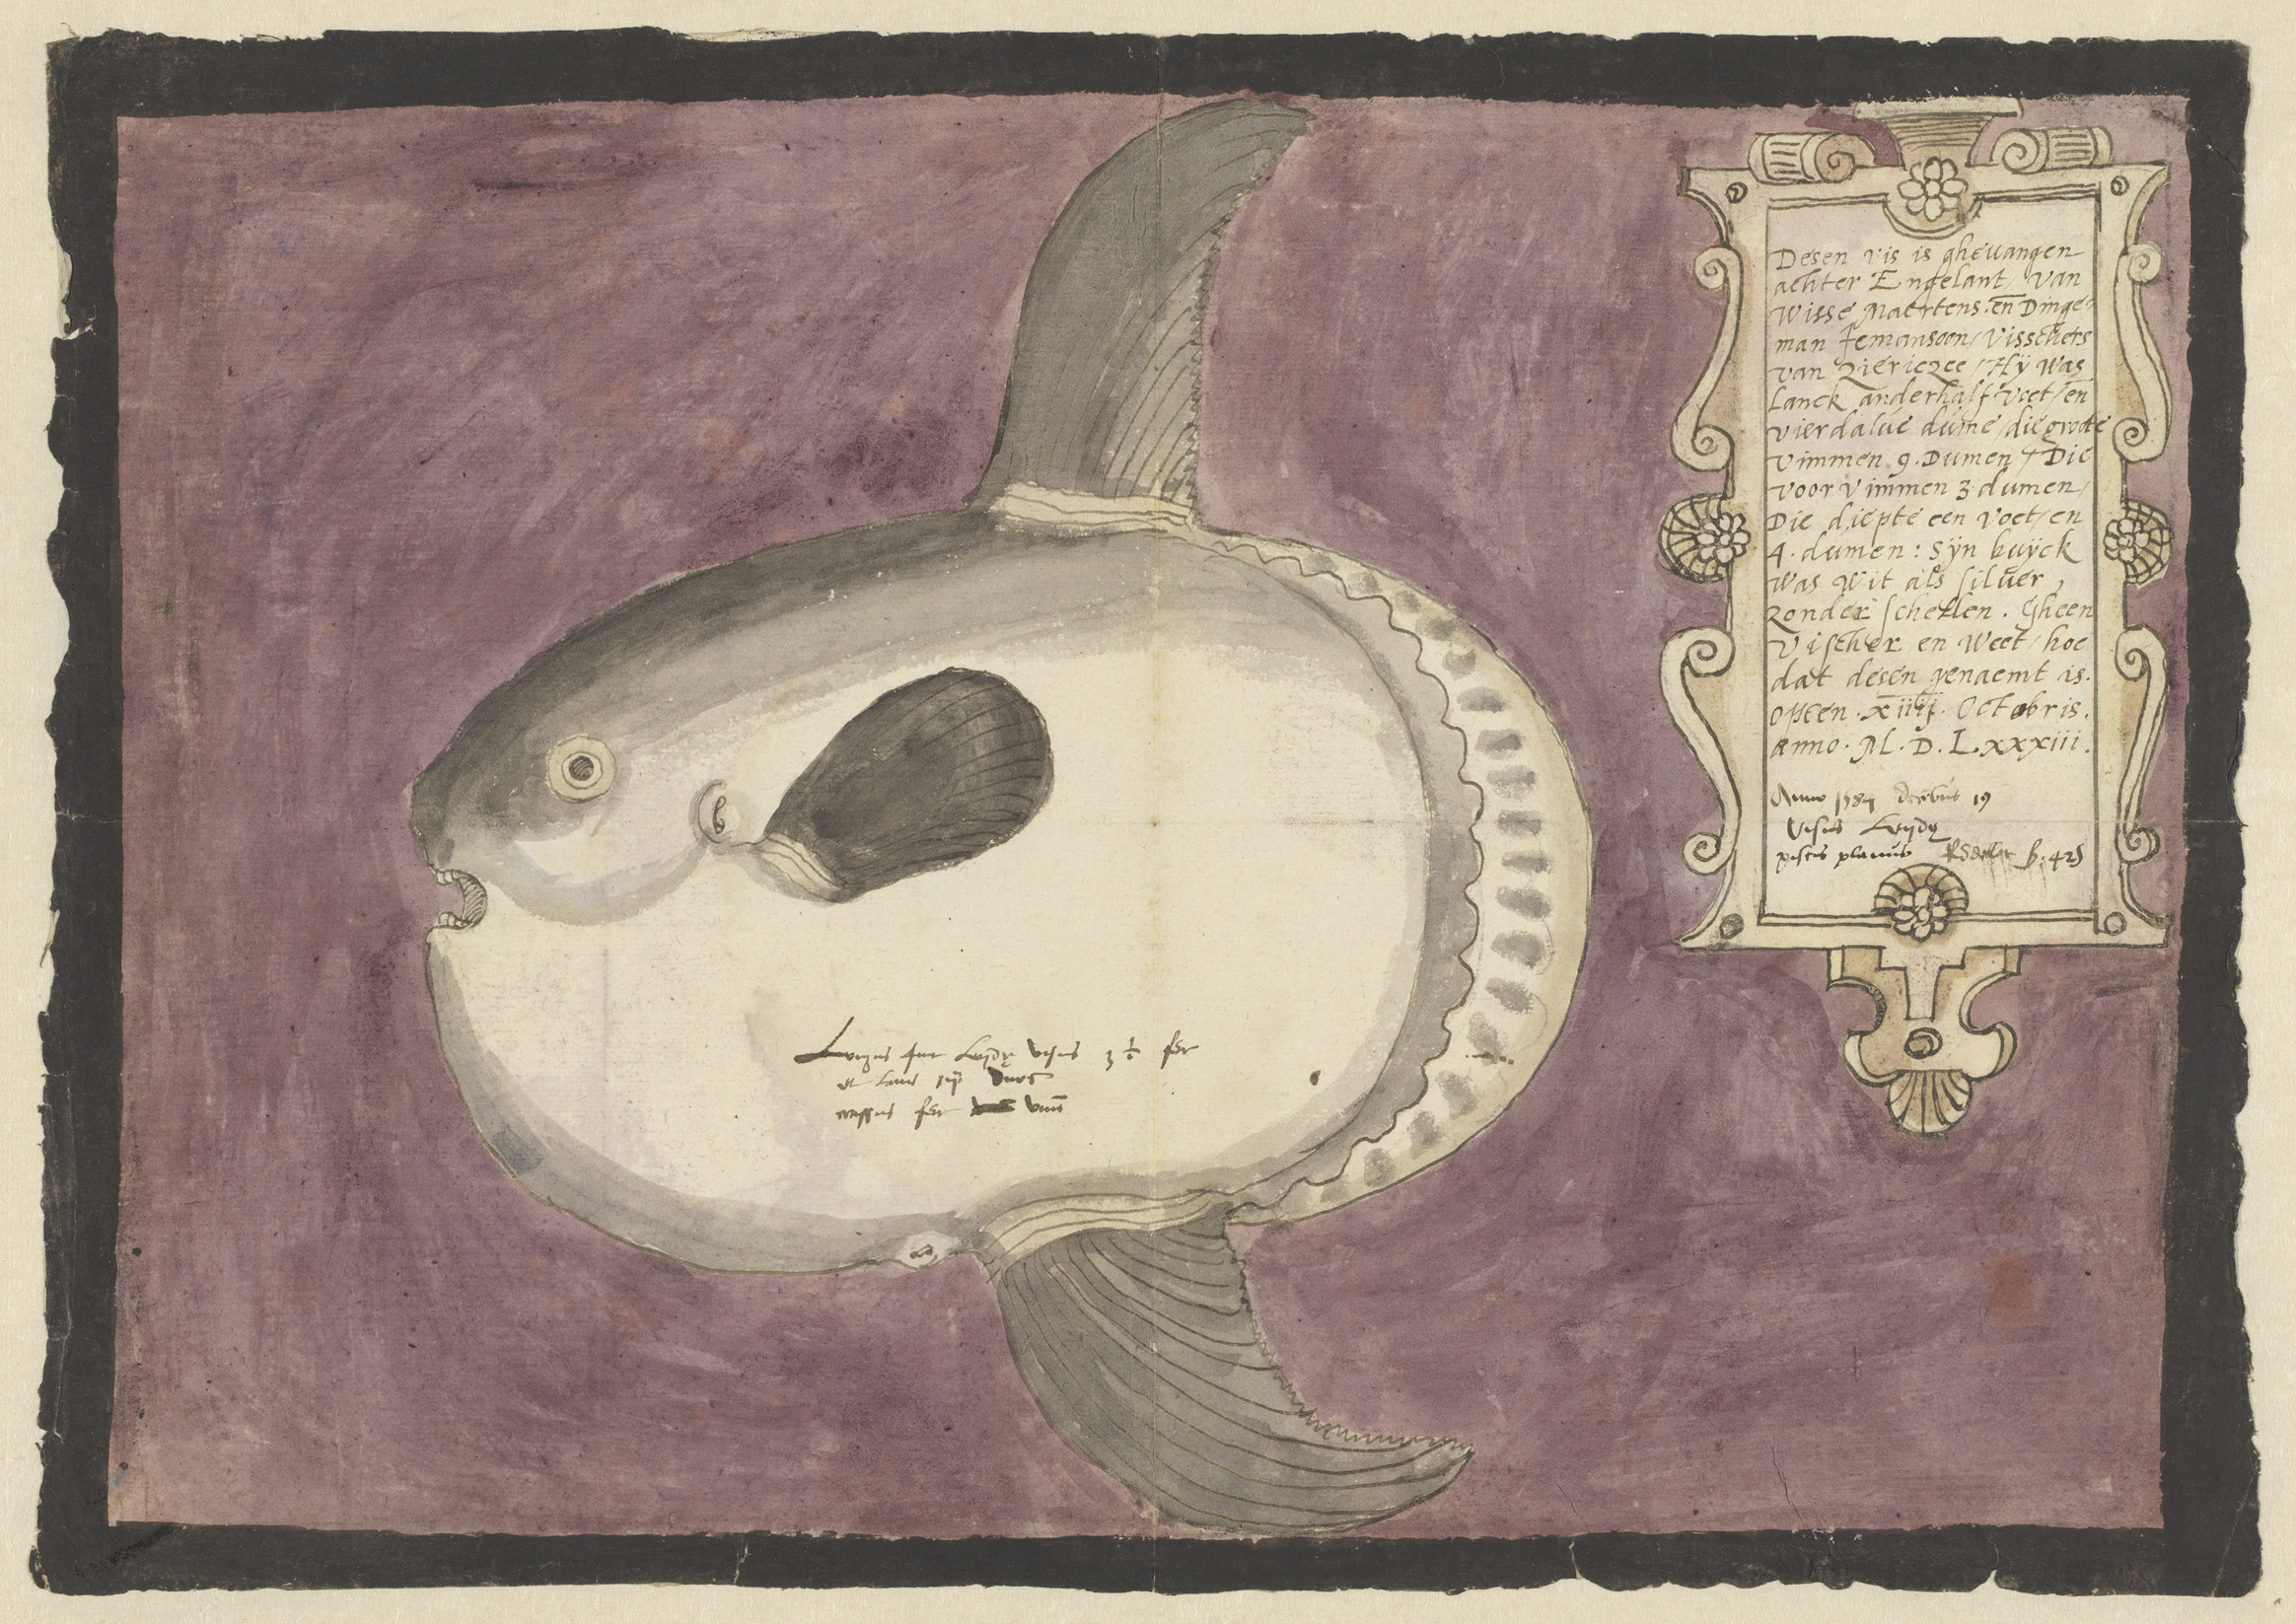 Desen vis is gheuangen
achter Engelant / van
Wisse Maertens. en̄ Dinge-
man Iemansoon / Visschers
van Ziericzee / Hÿ Was
Lanck anderhalf voet / en̄
vierdalue dume / die groote
vimmen 9. Dumen / Die
voor vimmen 3 dumen /
Die diepte een voet / en
4. dumen: Sÿn buÿck
Was Wit als silver,
Zonder schellen. Gheen
Vischer en Weet / hoe
dat desen genaemt is.
opten. xiiij. Octobris.
anno. M. D. Lxxxiii.
Anno 1584 19
Visus
piscis planus
Visus 3 ½
et
crassus